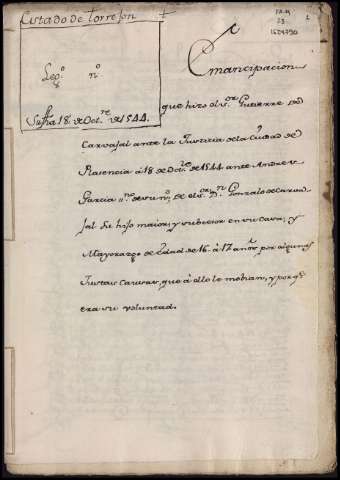 Estado de Torrejon +
Leg.º n.º
Su fha 18 de Oct.re de 1544.
Emancipacion
que hizo el s.or Gutierre de
Carvajal ante la Justicia de la Ciu.d de
Plasencia à 18 de Oct.re de 1544 ante Andres
Garcia de el s.or D.n Gonzalo de Carva
jal su hijo maior, y subcesor en su casa, y
Mayorazgo de edad de 16 à 17 años por algunas
Justas causas, que à ello le mobian, y porq.e
era su voluntad.